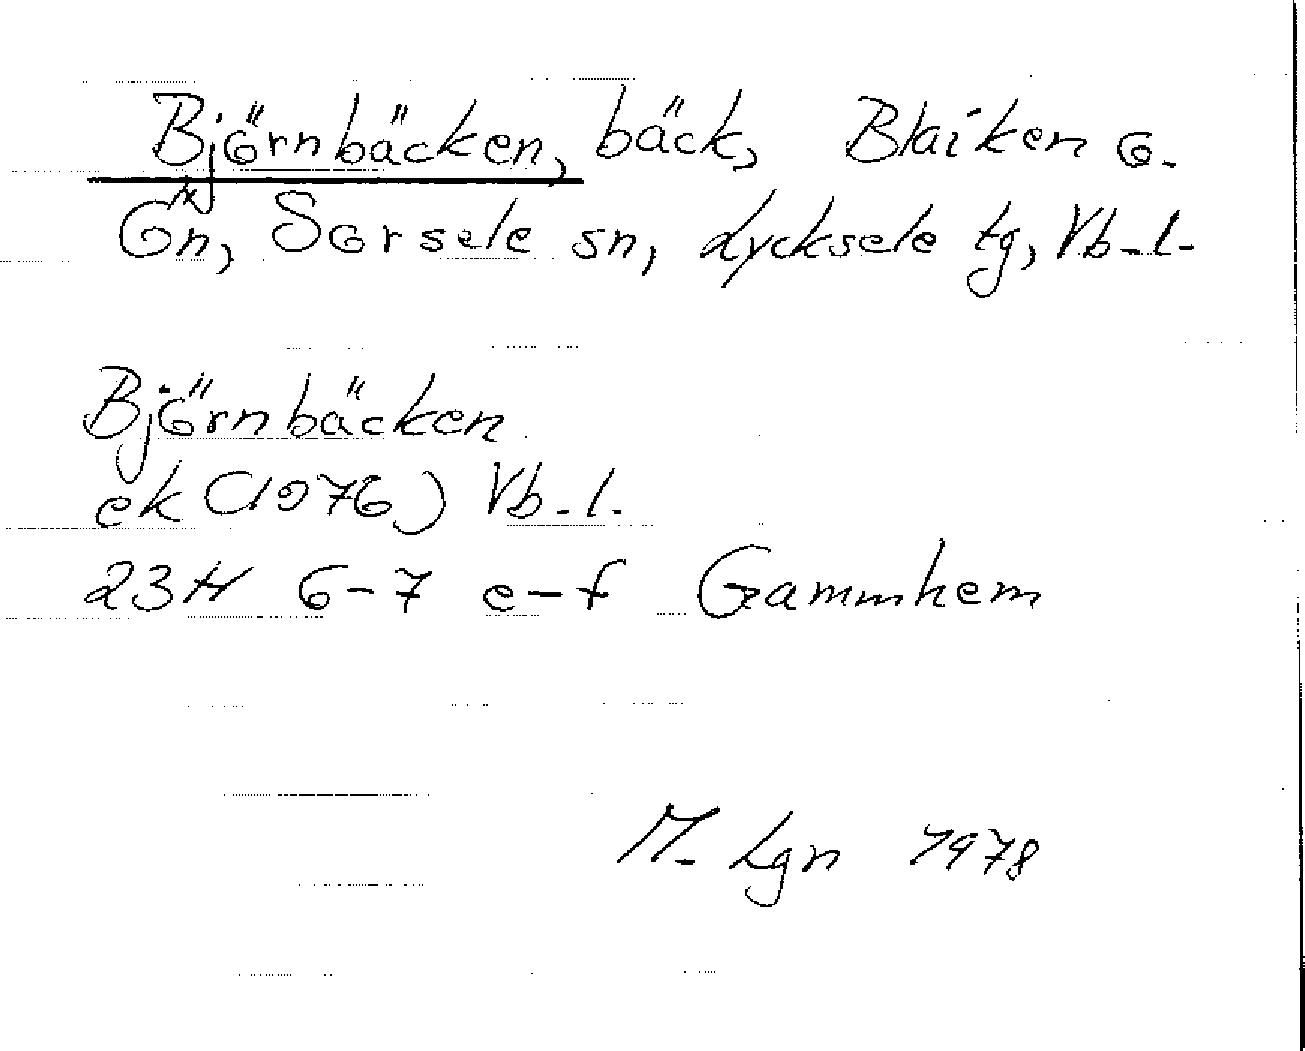 Björnbäcken, bäck, Blaiken o.
Ön, Sorsele sn, Lycksele tg, Vb.l.
Björnbäcken
ek (1976) Vb.l.
23H 6-7 e-f Gammhem
M. Lgn 1978